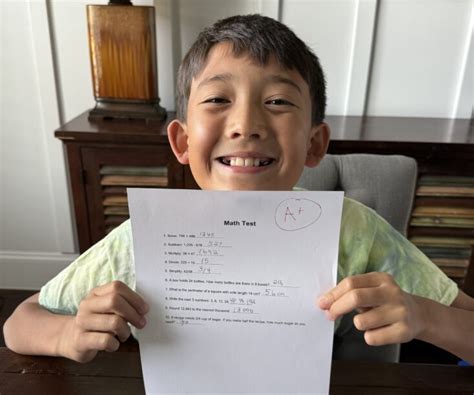 Math Test
A+
1. Solve: 1245
2. Subtract: 327
3. Multiply:
4. Divide: 15
5. Simplify: 3/4
6. A box holds 24 bottles. How many bottles are there in 9 boxes? 216
7. What is the perimeter of a square with side length 14 cm? 56 cm
8. Write the next 3 numbers: 3, 6, 12, 24
9. Round to the nearest thousand:
10. A recipe needs cup of sugar. If you make half the recipe, how much sugar do you
need?